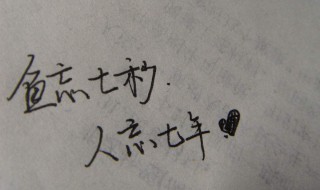 鱼忘七秒.
人忘七年♥